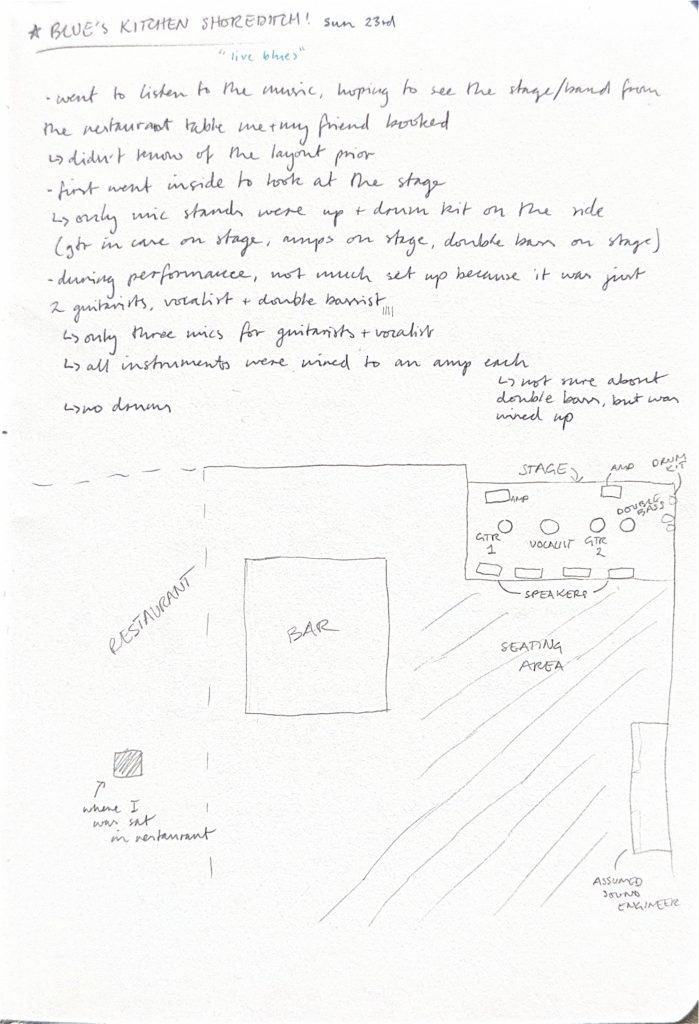 ★ BLUE'S KITCHEN SHOREDITCH! sun 23rd
"live blues"
- went to listen to the music, hoping to see the stage/band from
the restaurant table me + my friend booked
↳ didn't know of the layout prior
- first went inside to look at the stage
↳ only mic stands were up + drum kit on the side
(gtr in case on stage, amps on stage, double bass on stage)
- during performance, not much set up because it was just
2 guitarists, vocalist + double bassist
↳ only three mics for guitarists + vocalist
↳ all instruments were wired to an amp each
↳ not sure about
double bass, but was
wired up
↳ no drums
STAGE
AMP
DRUM
KIT
AMP
DOUBLE
BASS
GTR
1
VOCALIST
GTR
2
SPEAKERS
RESTAURANT
BAR
SEATING
AREA
where I
was sat
in restaurant
ASSUMED
SOUND
ENGINEER